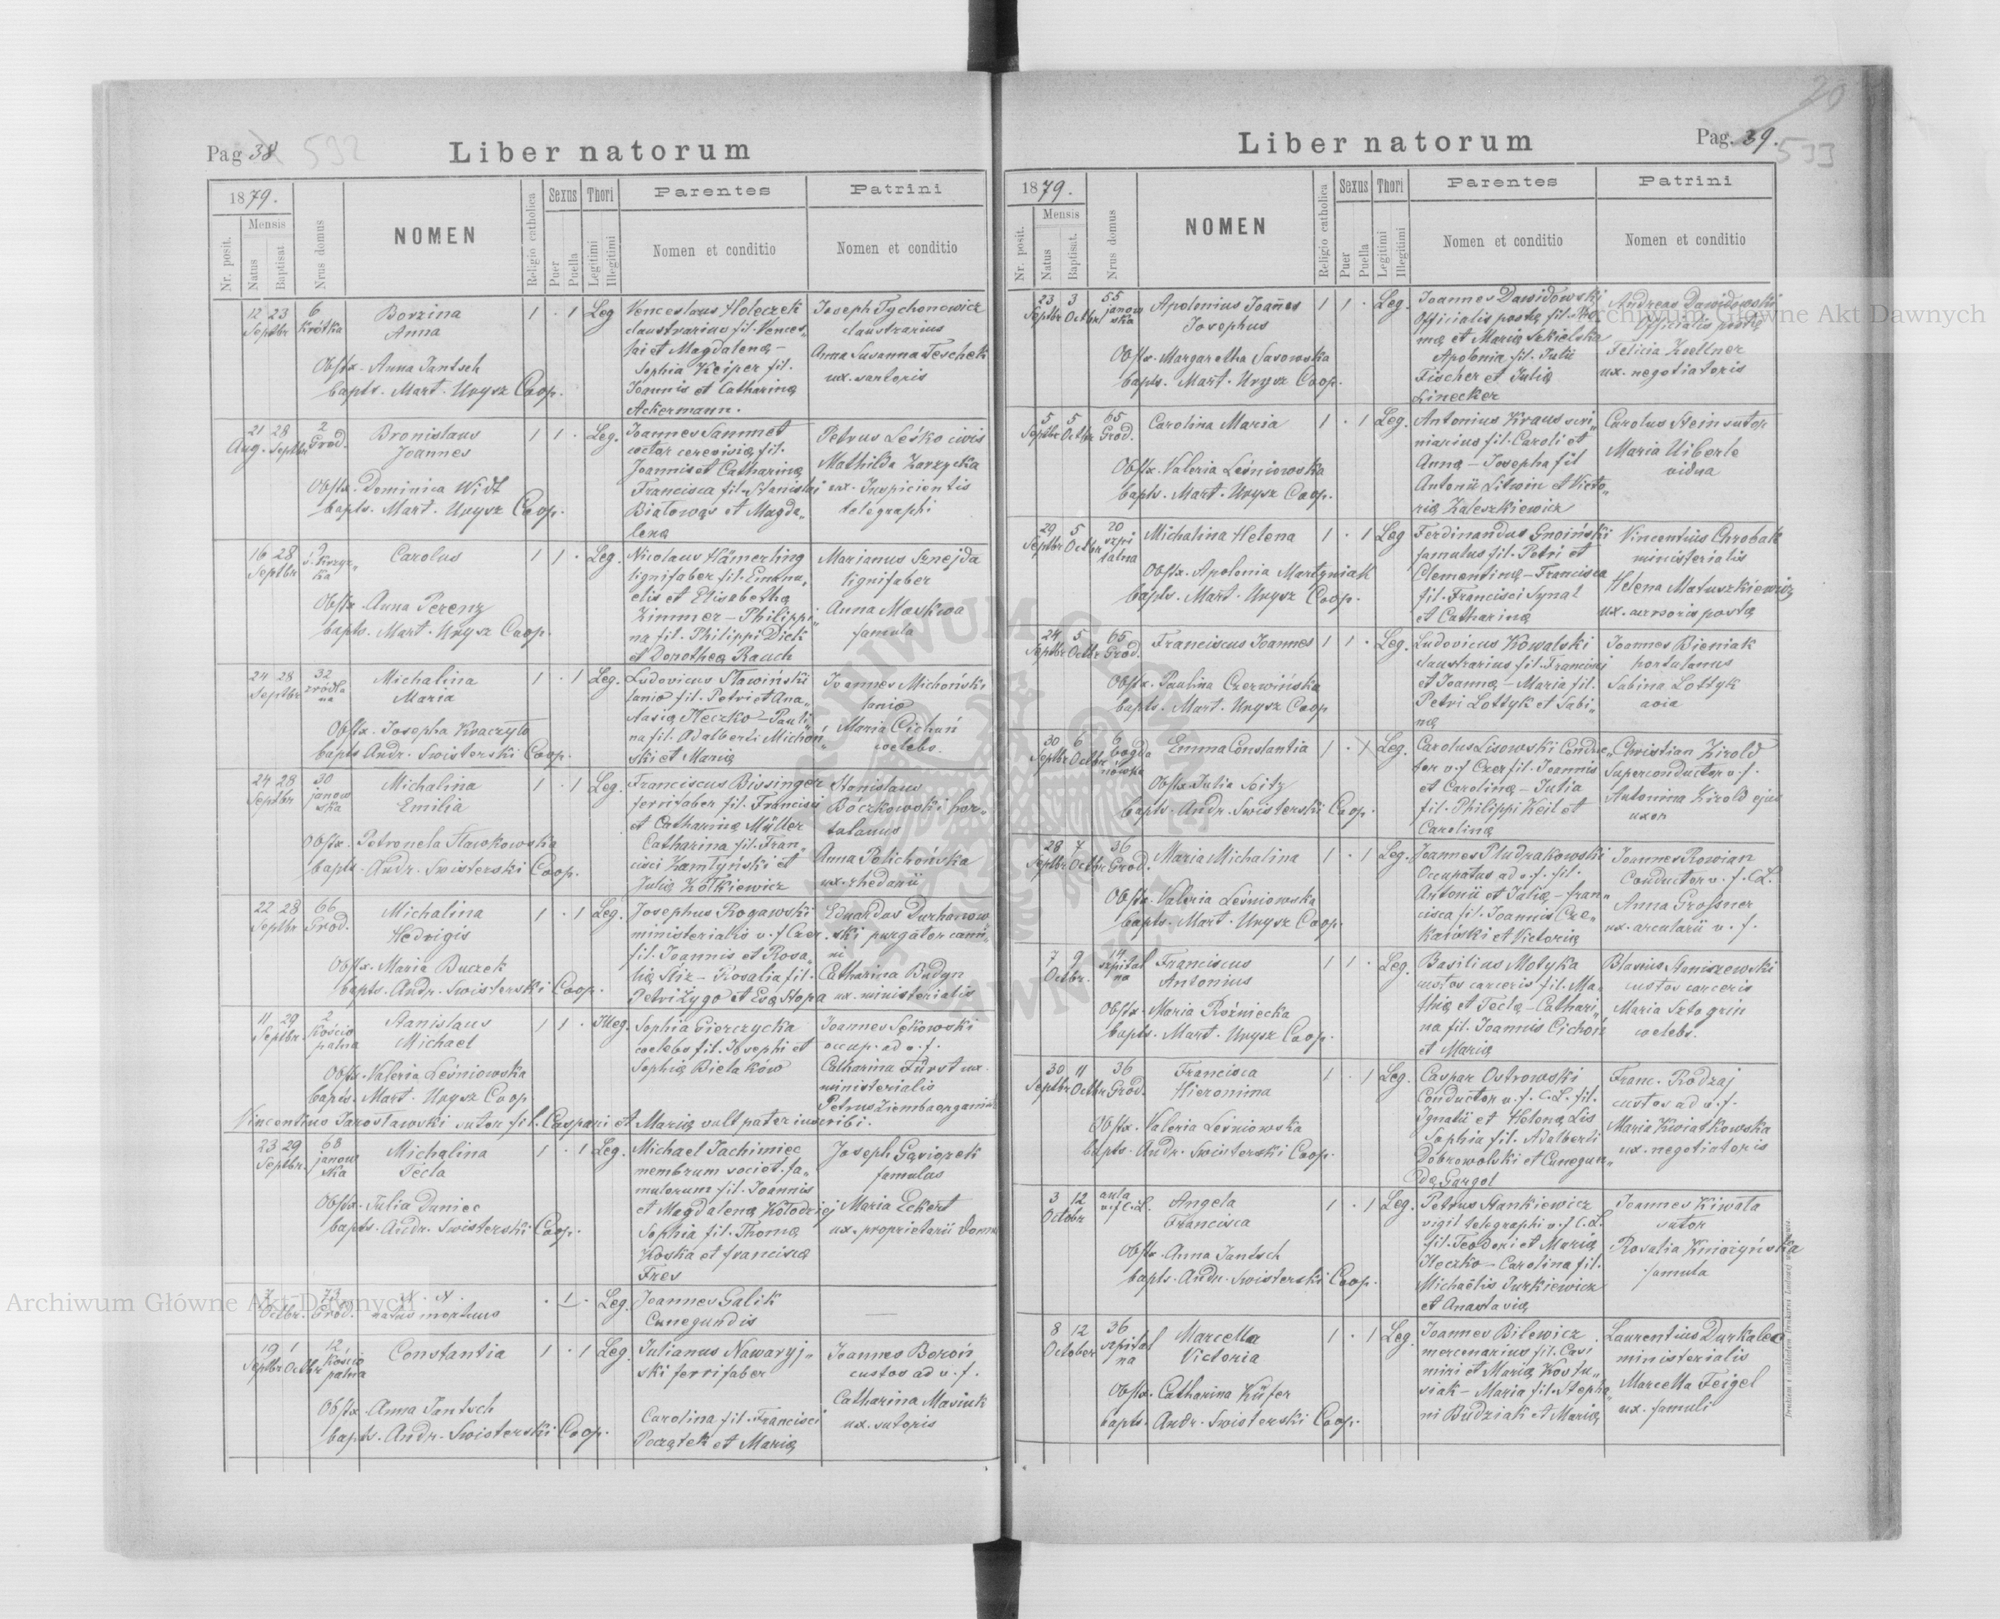 Pag 38
532
Liber natorum
1879.
Nr. posit.
Mensis
Natus
Baptisat
Nrus domus
NOMEN
Religio catholica
Sexus
Puer
Puella
Thori
Legitimi
Illegitimi
Parentes
Nomen et conditio
Patrini
Nomen et conditio
12 Septbr 23 6 Krótka
Borzina
Anna
1 · 1 Leg
Obstx. Anna Jantsch
bapts. Mart. Unysz Coop.
Venceslaus Holeczek
claustrarius fil. Vences-
lai et Magdalenę –
Sophia Keiper fil.
Joannis et Catharinę
Ackermann.
Joseph Tychonowicz
claustrarius
Anna Susanna Teschek
ux. sartoris
21 Aug. 28 Septbr 2 Grod.
Bronislaus
Joannes
1 1 · Leg.
Obstx. Dominica Widt
bapts. Mart. Unysz Coop.
Joannes Sammet
coctor cerevisię fil.
Joannis et Catharinę
Francisca fil. Stanislai
Białowąs et Magda-
lenę
Petrus Leśko civis
Mathilda Zarzycka
ux. Inspicientis
telegraphi
16 28 Septbr
Carolus
1 1 · Leg.
Obstx. Anna Perenz
bapts. Mart. Unysz Coop.
Nicolaus Hämerling
lignifaber fil. Emanu-
elis et Elisabethę
Zimmer – Philippi-
na fil. Philippi Dick
et Dorotheę Rauch
Marianus Sznejda
lignifaber
Anna Moskwa
famula
24 28 Septbr 32 źródla na
Michalina
Maria
1 · 1 Leg.
Obstx. Josepha Kraczyło
bapts Andr. Swisterski Coop.
Ludovicus Sławiński
lanio fil. Petri et Ana-
stasię Heczko – Pauli-
na fil. Adalberti Michoń-
ski et Marię
Joannes Michoński
lanio
Maria Cichań
coelebs.
24 28 Septbr 30 janow ska
Michalina
Emilia
1 · 1 Leg.
Obstx. Petronela Sławkowska
bapts. Andr. Swisterski Coop.
Franciscus Bissinger
ferrifaber fil. Francisci
et Catharinę Müller
Catharina fil. Fran-
cisci Kamtyński et
Julię Żółkiewicz
Stanislaus
Boczkowski hor-
tulanus
Anna Polichońska
ux. rhedarii
22 28 Septbr 66 Grod.
Michalina
Hedvigis
1 · 1 Leg.
Obstx. Maria Buczek
bapts. Andr. Swisterski Coop.
Josephus Rogawski
ministerialis v. f. Czer.
fil. Joannis et Rosa-
lię Stiz – Rosalia fil.
Petri Zygo et Evę Stopa
Eduardus Durhanow-
ski purgator cami-
ni
Catharina Badyn
ux. ministerialis
11 29 Septbr 2 Kościo palna
Stanislaus
Michael
1 1 · Illeg.
Obstx. Valeria Leśniowska
bapts. Mart. Unysz Coop
Sophia Gierczycka
coelebs fil. Josephi et
Sophię Bielaków
Joannes Sękowski
occup. ad v. f.
Catharina Fürst ux.
ministerialis
Petrus Ziemba
Vincentius Jarosławski sutor fil. Caspari et Marię vult pater inscribi.
23 29 Septbr. 68 janow ska
Michalina
Tecla
1 · 1 Leg.
Obstx. Julia Duniec
bapts. Andr. Swisterski Coop.
Michael Jachimiec
membrum societ. fa-
mulorum fil. Joannis
et Magdalenę Kołodziej
Sophia fil. Thomę
Koska et Franciscę
Fres
Joseph Gąsiorek
famulus
Maria Eckert
ux. proprietarii domu
Octbr. 73 Grod.
N. N.
natus mortuus
· 1 · Leg.
Joannes Galik
Cunegundis
19 Septbr 1 Octbr 12 Kościo palna
Constantia
1 · 1 Leg.
Obstx. Anna Jantsch
bapts. Andr. Swisterski Coop.
Julianus Nawaryj-
ski ferrifaber
Carolina fil. Francisci
Początek et Marię
Joannes Beroń
custos ad v. f.
Catharina Masiuk
ux. sutoris
20
Pag. 39.
533
Liber natorum
1879.
Nr. posit.
Mensis
Natus
Baptisat.
Nrus domus
NOMEN
Religio catholica
Sexus
Puer
Puella
Thori
Legitimi
Illegitimi
Parentes
Nomen et conditio
Patrini
Nomen et conditio
23 Septbr 3 Octbr 55 janow ska
Apolonius Joannes
Josephus
1 1 · Leg.
Obstx. Margaretha Sasowska
bapts. Mart. Unysz Coop.
Joannes Dawidowski
Officialis postę fil. Tho-
mę et Marię Sekielska
Apolonia fil. Julii
Fischer et Julię
Linecker
Andreas Dawidowski
Officialis postę
Felicia Koellner
ux. negotiatoris
5 Septbr 5 Octbr 65 Grod.
Carolina Maria
1 · 1 Leg.
Obstx. Valeria Leśniowska
bapts. Mart. Unysz Coop.
Antonius Kraus scri-
niarius fil. Caroli et
Annę – Josepha fil
Antonii Litwin et Victo-
rię Zaleszkiewicz
Carolus Stein sutor
Maria Uiberle
vidua
29 Septbr 5 Octbr 20 szpi talna
Michalina Helena
1 · 1 Leg
Obstx. Apolonia Martyniak
bapts. Mart. Unysz Coop.
Ferdinandus Gnoiński
famulus fil. Petri et
Clementinę – Francisca
fil. Francisci Synal
et Catharinę
Vincentius Chrobak
ministerialis
Helena Matuszkiewicz
ux. cursoris postę
24 Septbr 5 Octbr 65 Grod.
Franciscus Joannes
1 1 · Leg.
Obstx. Paulina Czerwińska
bapts. Mart. Unysz Coop
Ludovicus Kowalski
claustrarius fil. Francisci
et Joannę – Maria fil.
Petri Lottyk et Sabi-
nę
Joannes Bieniak
hortulanus
Sabina Lottyk
avia
30 Septbr 6 Octbr 6 bogda nówka
Emma Constantia
1 · 1 Leg.
Obstx Julia Seitz
bapts. Andr. Swisterski Coop.
Carolus Lisowski Conduc-
tor v. f Czer fil. Joannis
et Carolinę – Julia
fil. Philippi Keil et
Carolinę
Christian Zirold
Superconductor v. f.
Antonina Zirold ejus
uxor
28 Septbr 7 Octbr 36 Grod.
Maria Michalina
1 · 1 Leg.
Obstx. Valeria Leśniowska
bapts. Mart. Unysz Coop.
Joannes Pludrakowski
Occupatus ad v. f. fil.
Antonii et Julię – Fran-
cisca fil. Joannis Cze-
kański et Victorię
Joannes Rowian
Conductor v. f. C. L.
Anna Grossner
ux. arcularii v. f.
7 9 Octbr. 14 szpital na
Franciscus
Antonius
1 1 · Leg.
Obstx. Maria Rożniecka
bapts. Mart. Unysz Coop.
Basilius Motyka
custos carceris fil. Ma-
thię et Teclę – Cathari-
na fil. Joannis Cichon
et Marię
Blasius Staniszewski
custos carceris
Maria Sztogrin
coelebs.
30 Septbr 11 Octbr 36 Grod.
Francisca
Hieronima
1 · 1 Leg.
Obstx. Valeria Leśniowska
bapts. Andr. Swisterski Coop.
Caspar Ostrowski
Conductor v. f. C. L. fil.
Ignatii et Helenę Lis
Sophia fil. Adalberti
Dobrowolski et Cunegun-
dę Gargol
Franc. Rodzaj
custos ad v. f.
Maria Kwiatkowska
ux. negotiatoris
3 12 Octobr aula v. f C. L.
Angela
Francisca
1 · 1 Leg.
Obstx. Anna Jantsch
bapts. Andr. Swisterski Coop.
Petrus Stankiewicz
vigil telegraphi v. f C. L.
fil. Teodori et Marię
Heczko – Carolina fil.
Michaëlis Jurkiewicz
et Anastasię
Joannes Kiwata
sutor
Rosalia Kniazyńska
famula
8 12 October 36 szpital na
Marcella
Victoria
1 · 1 Leg
Obstx. Catharina Küfer
bapts. Andr. Swisterski Coop.
Joannes Bilewicz
mercenarius fil. Casi
miri et Marię Kostu-
siak – Maria fil. Stepha-
ni Budziak et Marię
Laurentius Durkalec
ministerialis
Marcella Feigel
ux. famuli
Archiwum Główne Akt Dawnych
Archiwum Główne Akt Dawnych